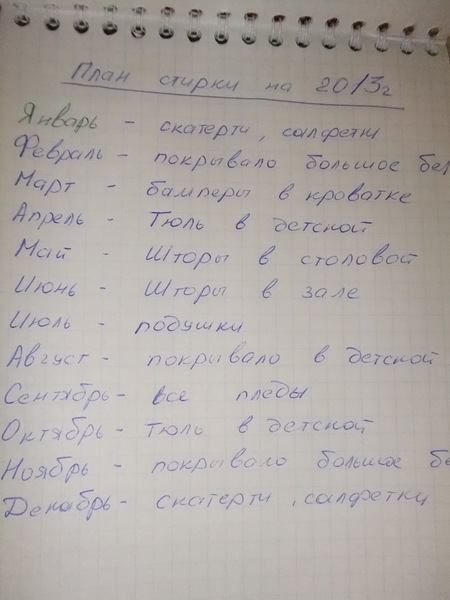 План стирки на 2013г
Январь - скатерти, салфетки
Февраль - покрывало большое бел
Март - бамперы в кроватке
Апрель - Тюль в детской
Май - Шторы в столовой
Июнь - Шторы в зале
Июль - подушки
Август - покрывало в детской
Сентябрь - все пледы
Октябрь - Тюль в детской
Ноябрь - покрывало большое бе
Декабрь - скатерти, салфетки